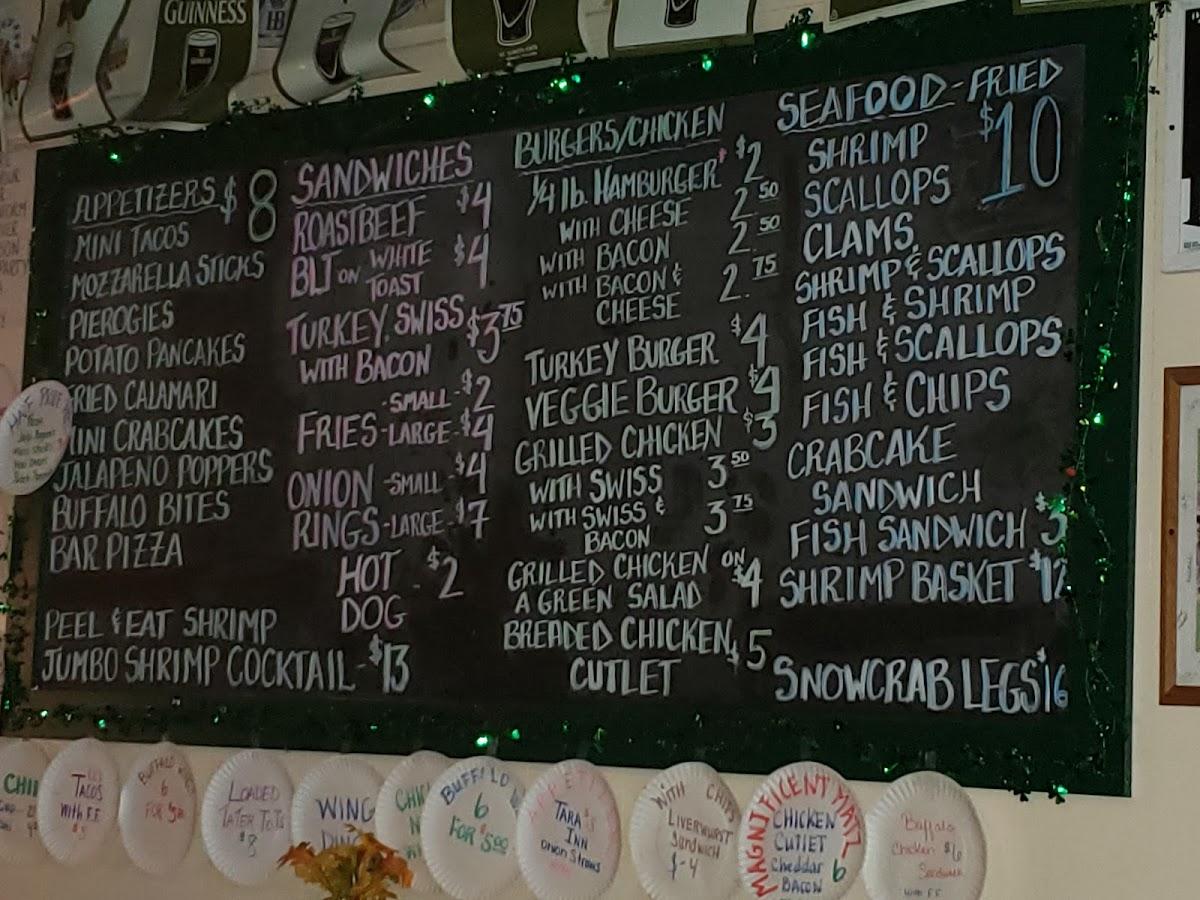 GUINNESS
APPETIZERS $8
MINI TACOS
MOZZARELLA STICKS
PIEROGIES
POTATO PANCAKES
FRIED CALAMARI
MINI CRABCAKES
JALAPENO POPPERS
BUFFALO BITES
BAR PIZZA
PEEL & EAT SHRIMP
JUMBO SHRIMP COCKTAIL - $13
SANDWICHES
ROASTBEEF $4
BLT ON WHITE TOAST $4
TURKEY, SWISS $3.75
WITH BACON
FRIES - SMALL - $2
- LARGE - $4
ONION - SMALL - $4
RINGS - LARGE - $7
HOT - $2
DOG
BURGERS/CHICKEN
1/4 lb. HAMBURGER* $2
WITH CHEESE 2.50
WITH BACON 2.50
WITH BACON & 2.75
CHEESE
TURKEY BURGER $4
VEGGIE BURGER $4
GRILLED CHICKEN $3
WITH SWISS 3.50
WITH SWISS & 3.75
BACON
GRILLED CHICKEN ON
A GREEN SALAD $4
BREADED CHICKEN $5
CUTLET
SEAFOOD - FRIED
SHRIMP $10
SCALLOPS
CLAMS
SHRIMP & SCALLOPS
FISH & SHRIMP
FISH & SCALLOPS
FISH & CHIPS
CRABCAKE
SANDWICH
FISH SANDWICH $3
SHRIMP BASKET $12
SNOWCRAB LEGS $16
TACOS
With F.F.
$5
BUFFALO
6
FOR
LOADED
TATER TOTS
$
WING
BUFFALO
6
FOR $5.00
APPETI
TARA'S
INN
Onion Straws
WITH CHIPS
LIVERWURST
SANDWICH
$-4
MAGNIFICENT
CHICKEN
CUTLET
Cheddar
BACON
6
Buffalo
Chicken $6
Sandwich
With F.F.